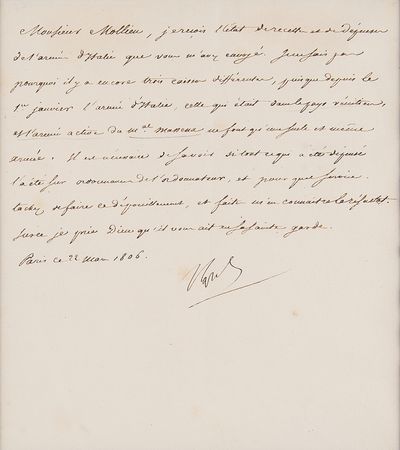 Monsieur Mollien, je reçois l'état de recette et de dépense
de l'armée d'Italie que vous m'avez envoyé. Je ne sais pas
pourquoi il y a encore trois caisses différentes, puisque depuis le
1er janvier l'armée d'Italie, celle qui était dans le pays vénitien,
et l'armée active du mal Massena ne font qu'une seule et même
armée. Il est nécessaire de savoir si tout ce qui a été dépensé
l'a été sur ordonnance de l'ordonnateur, et pour quel service.
tachez de faire ce dépouillement, et faites m'en connaitre le résultat.
Sur ce je prie Dieu qu'il vous ait en sa sainte garde.
Paris ce 22 mars 1806.